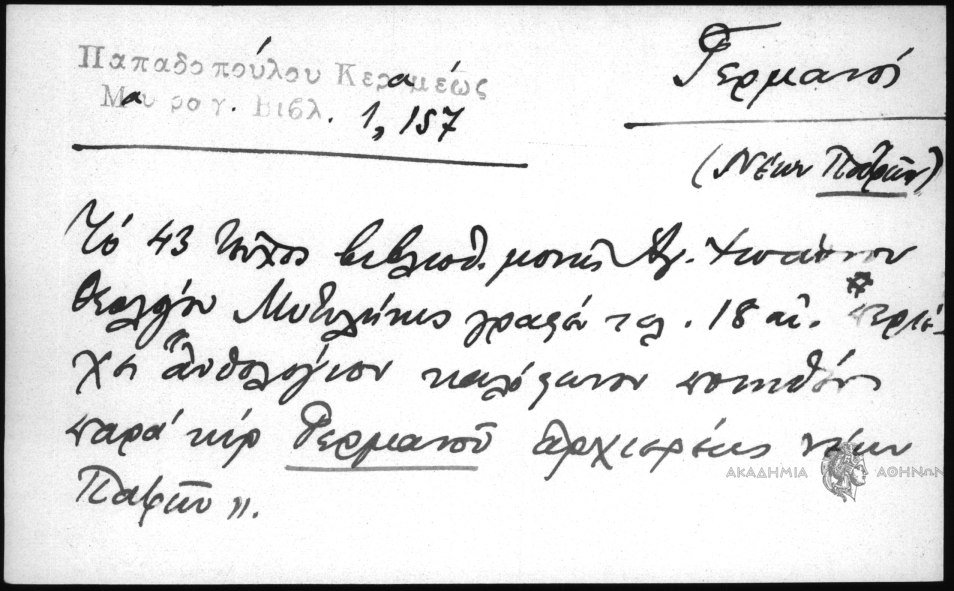 Παπαδοπούλου Κεραμέως
Μαυρογ. Βιβλ. 1, 157
Γερμανός
(Νέων Πατρῶν)
Τό 43 τεῦχος βιβλιοθ. μονῆς Ἁγ. Ἰωάννου
Θεολόγου Μυτιλήνης γραφέν τῷ 18 αἰ. περιέ-
χει "Ἀνθολόγιον καλόφωνον ποιηθέν
παρά κύρ Γερμανοῦ ἀρχιερέως νέων
Πατρῶν".
ΑΚΑΔΗΜΙΑ ΑΘΗΝΩΝ